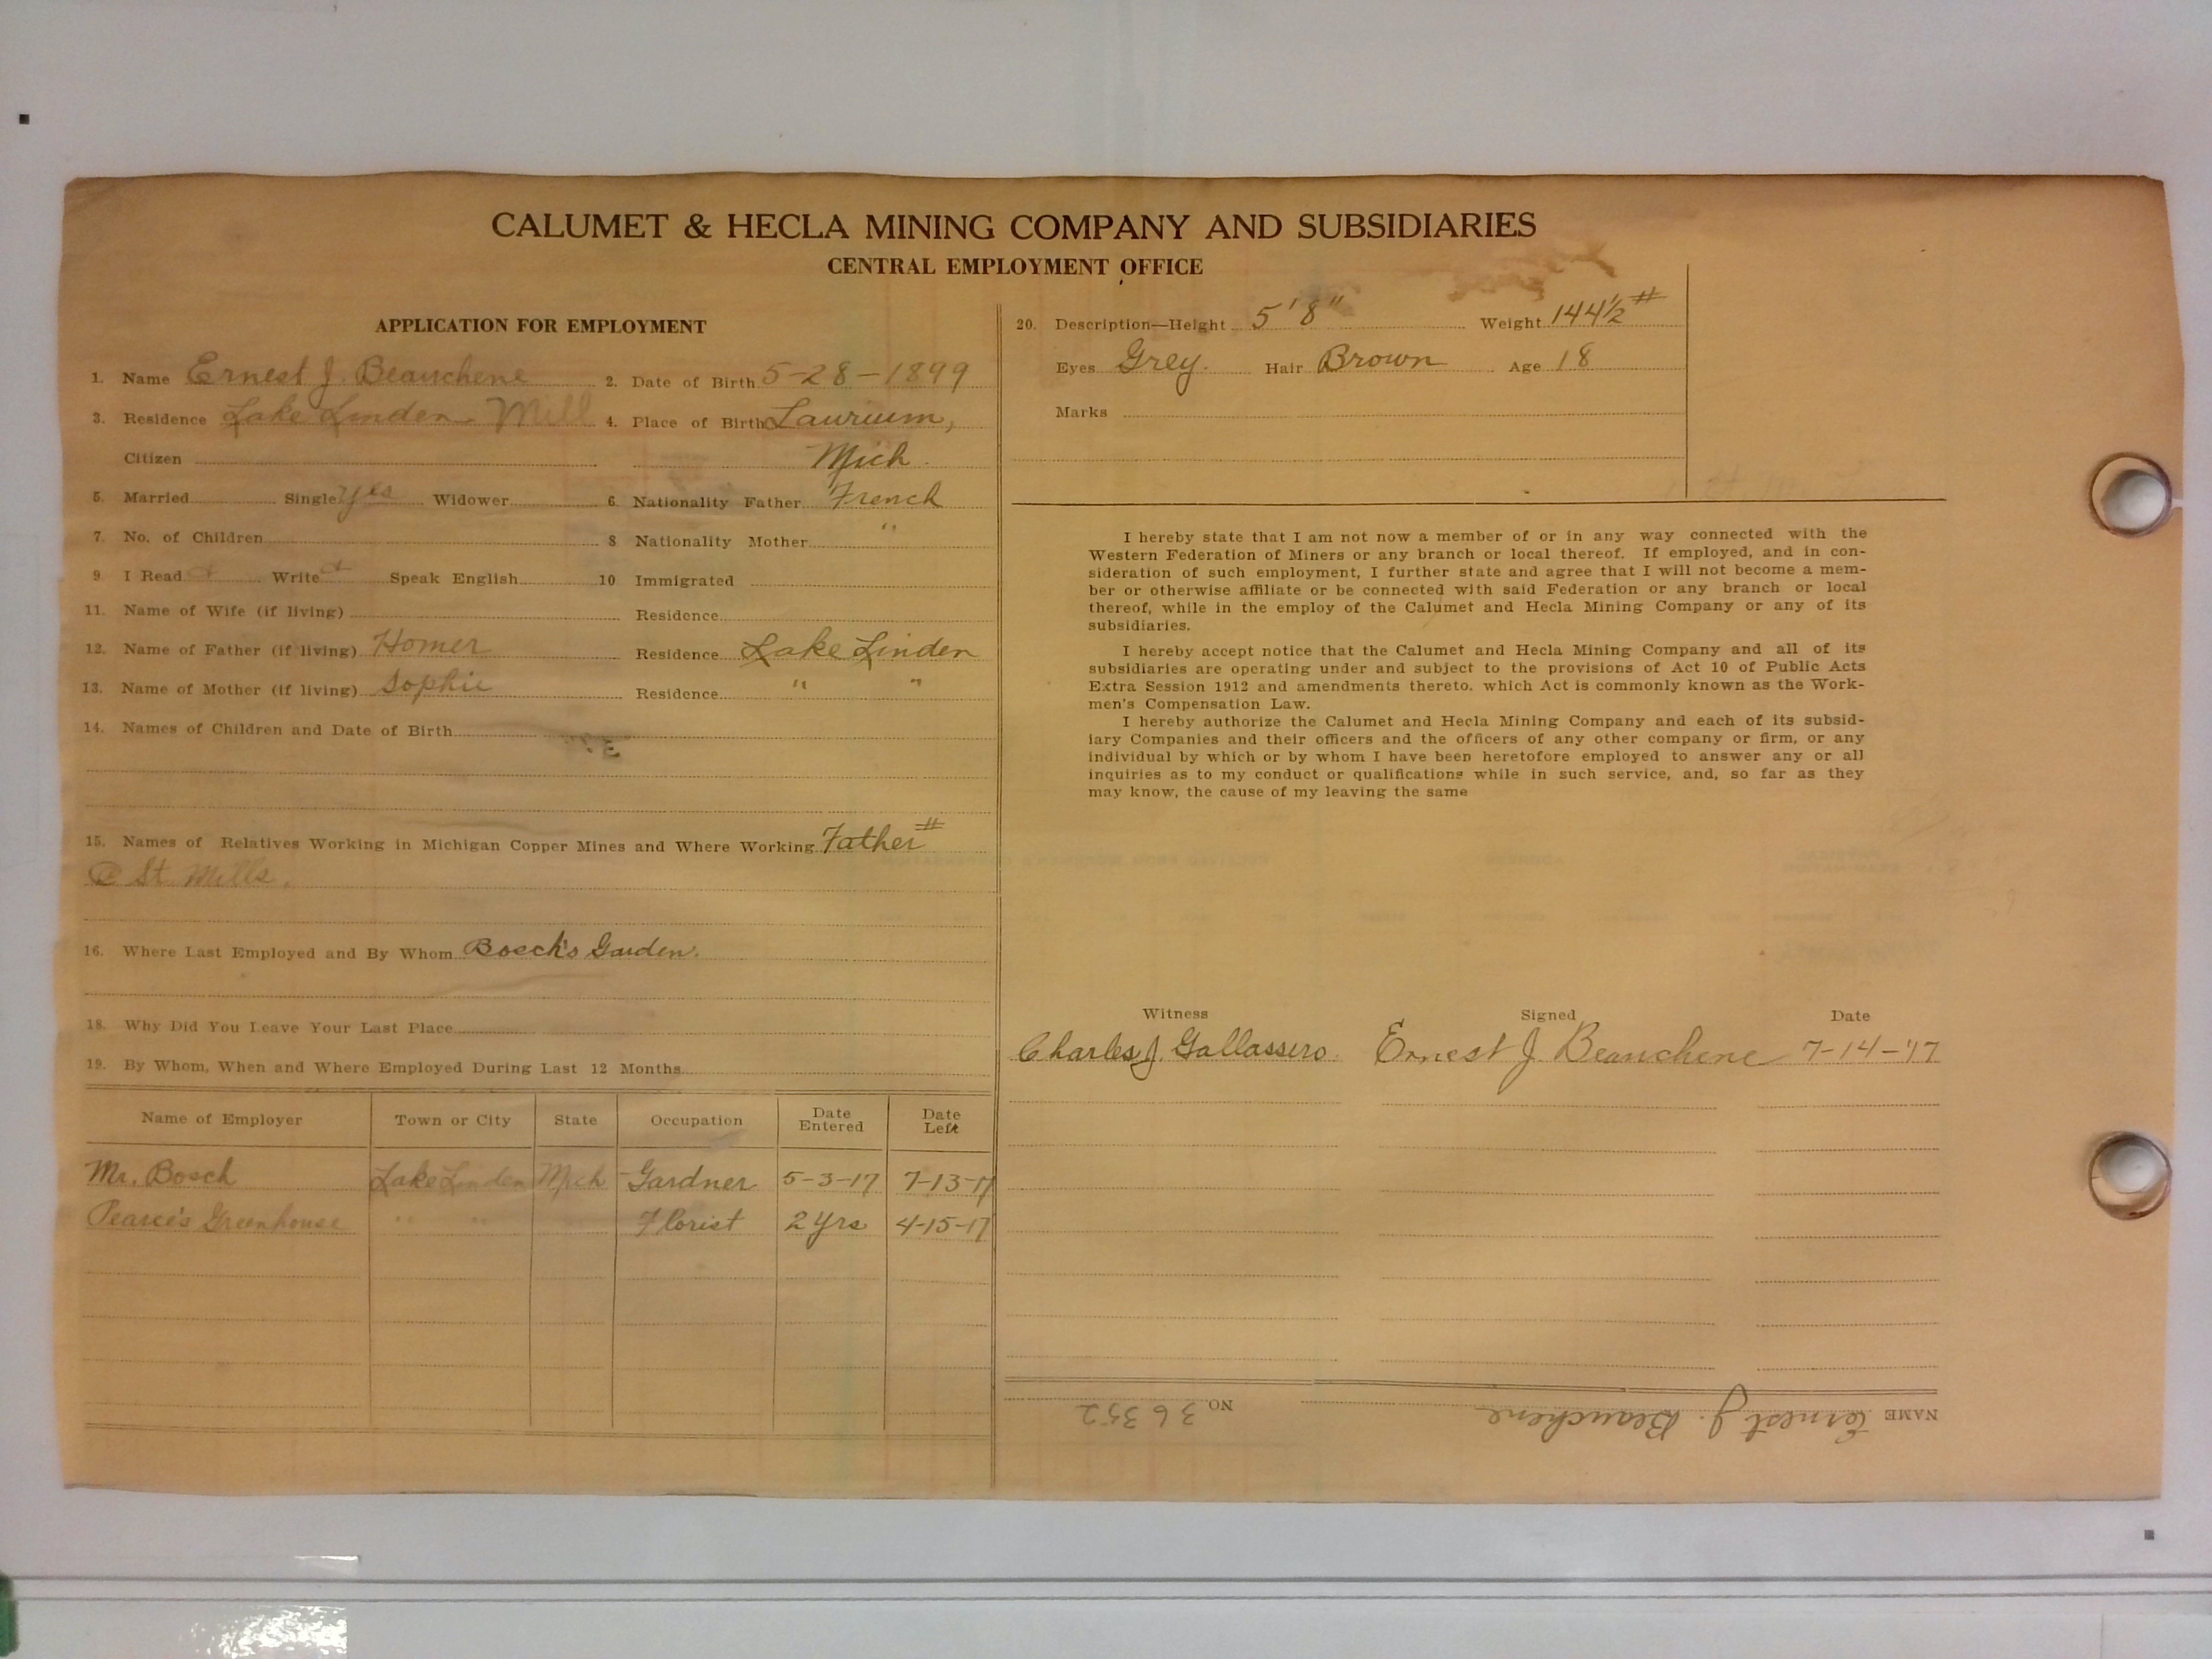 CALUMET & HECLA MINING COMPANY AND SUBSIDIARIES
CENTRAL EMPLOYMENT OFFICE
APPLICATION FOR EMPLOYMENT
1. Name Ernest J. Beauchene 2. Date of Birth 5-28-1899
3. Residence Lake Linden. Mill 4. Place of Birth Laurium,
Citizen Mich.
5. Married Single yes Widower 6. Nationality Father French
7. No. of Children 8 Nationality Mother "
9 I Read Write Speak English 10 Immigrated
11. Name of Wife (if living) Residence
12. Name of Father (if living) Homer Residence Lake Linden
13. Name of Mother (if living) Sophie Residence " "
14. Names of Children and Date of Birth
15. Names of Relatives Working in Michigan Copper Mines and Where Working Father #
@ St Mills.
16. Where Last Employed and By Whom Bosch's Garden.
18. Why Did You Leave Your Last Place
19. By Whom, When and Where Employed During Last 12 Months
Name of Employer Town or City State Occupation Date Entered Date Left
Mr. Bosch Lake Linden Mich Gardner 5-3-17 7-13-17
Pearce's Greenhouse " " Florist 2 yrs 4-15-17
20. Description—Height 5'8" Weight 144½ #
Eyes Grey. Hair Brown Age 18
Marks
I hereby state that I am not now a member of or in any way connected with the
Western Federation of Miners or any branch or local thereof. If employed, and in con-
sideration of such employment, I further state and agree that I will not become a mem-
ber or otherwise affiliate or be connected with said Federation or any branch or local
thereof, while in the employ of the Calumet and Hecla Mining Company or any of its
subsidiaries.
I hereby accept notice that the Calumet and Hecla Mining Company and all of its
subsidiaries are operating under and subject to the provisions of Act 10 of Public Acts
Extra Session 1912 and amendments thereto. which Act is commonly known as the Work-
men's Compensation Law.
I hereby authorize the Calumet and Hecla Mining Company and each of its subsid-
iary Companies and their officers and the officers of any other company or firm, or any
individual by which or by whom I have been heretofore employed to answer any or all
inquiries as to my conduct or qualifications while in such service, and, so far as they
may know, the cause of my leaving the same
Witness Signed Date
Charles J. Gallassero. Ernest J. Beauchene 7-14-'17
NAME Ernest J. Beauchene NO. 36352